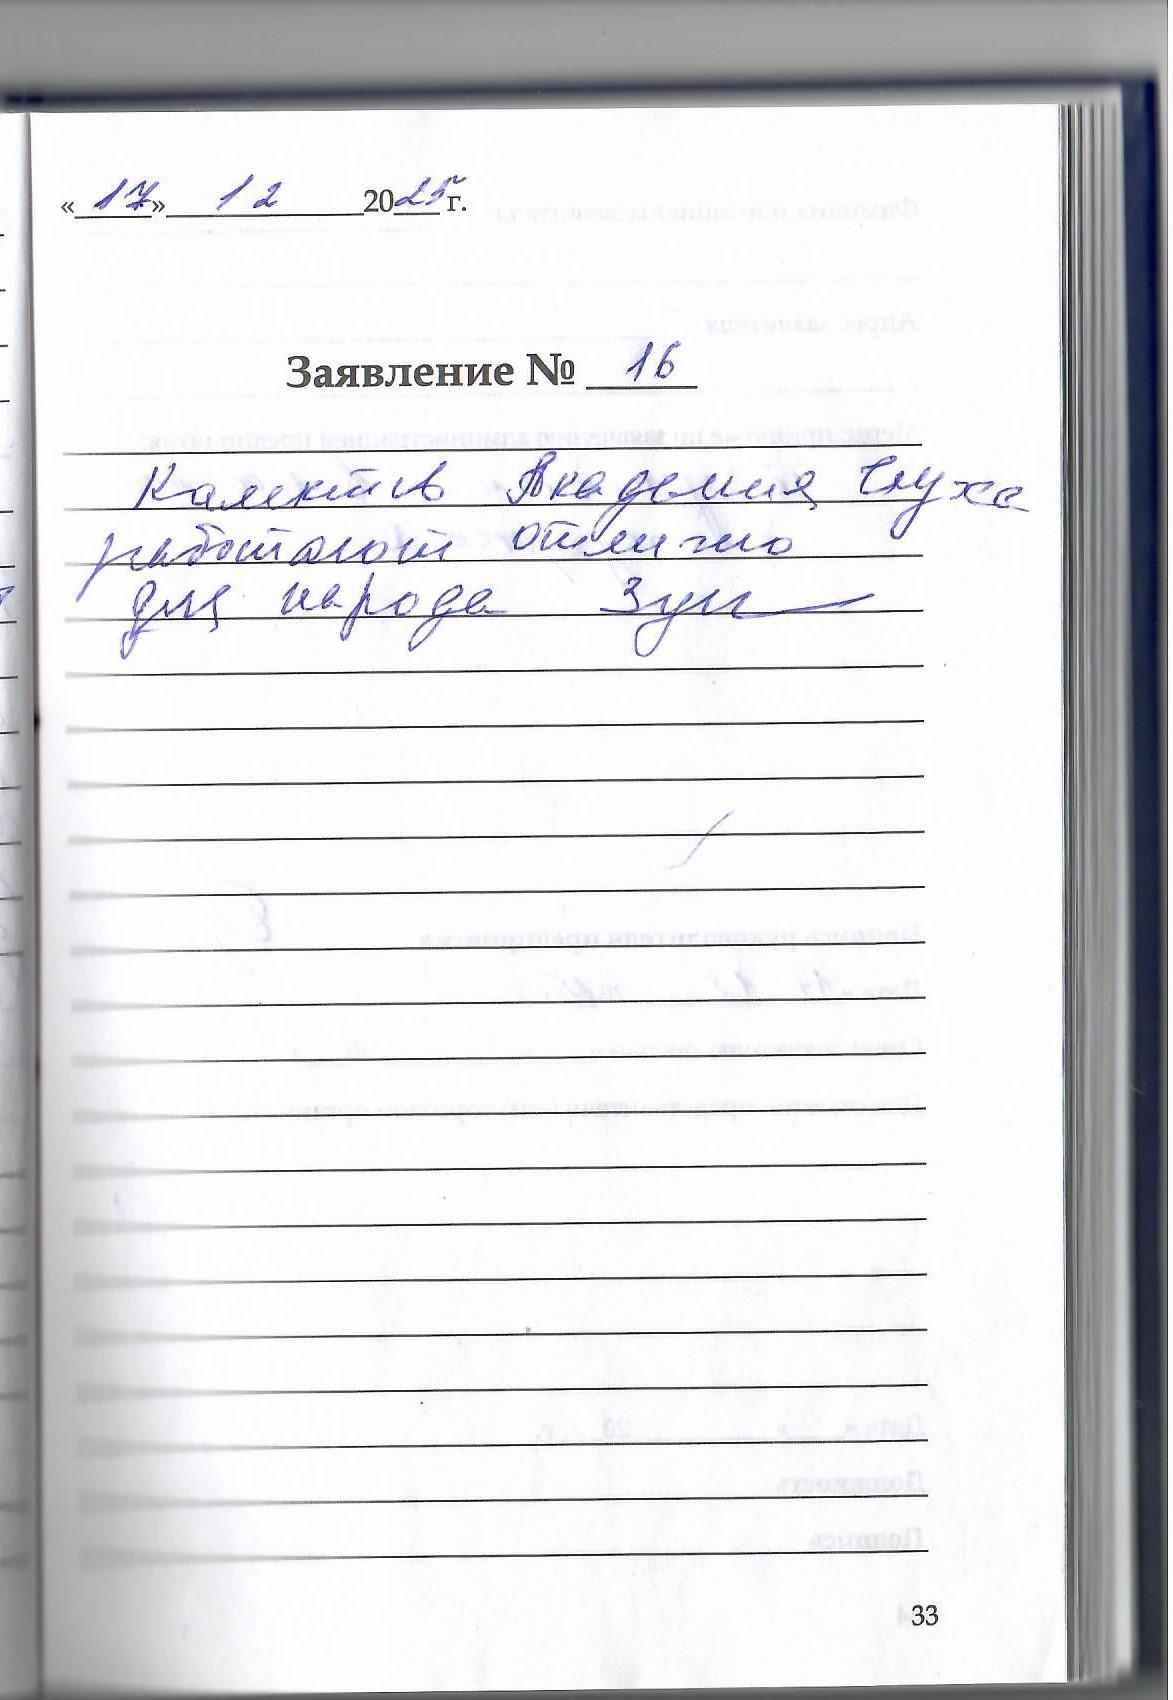 «17» 12 2025 г.
Заявление № 16
Калектив Академия Слуха
работают отлично
для народа
33